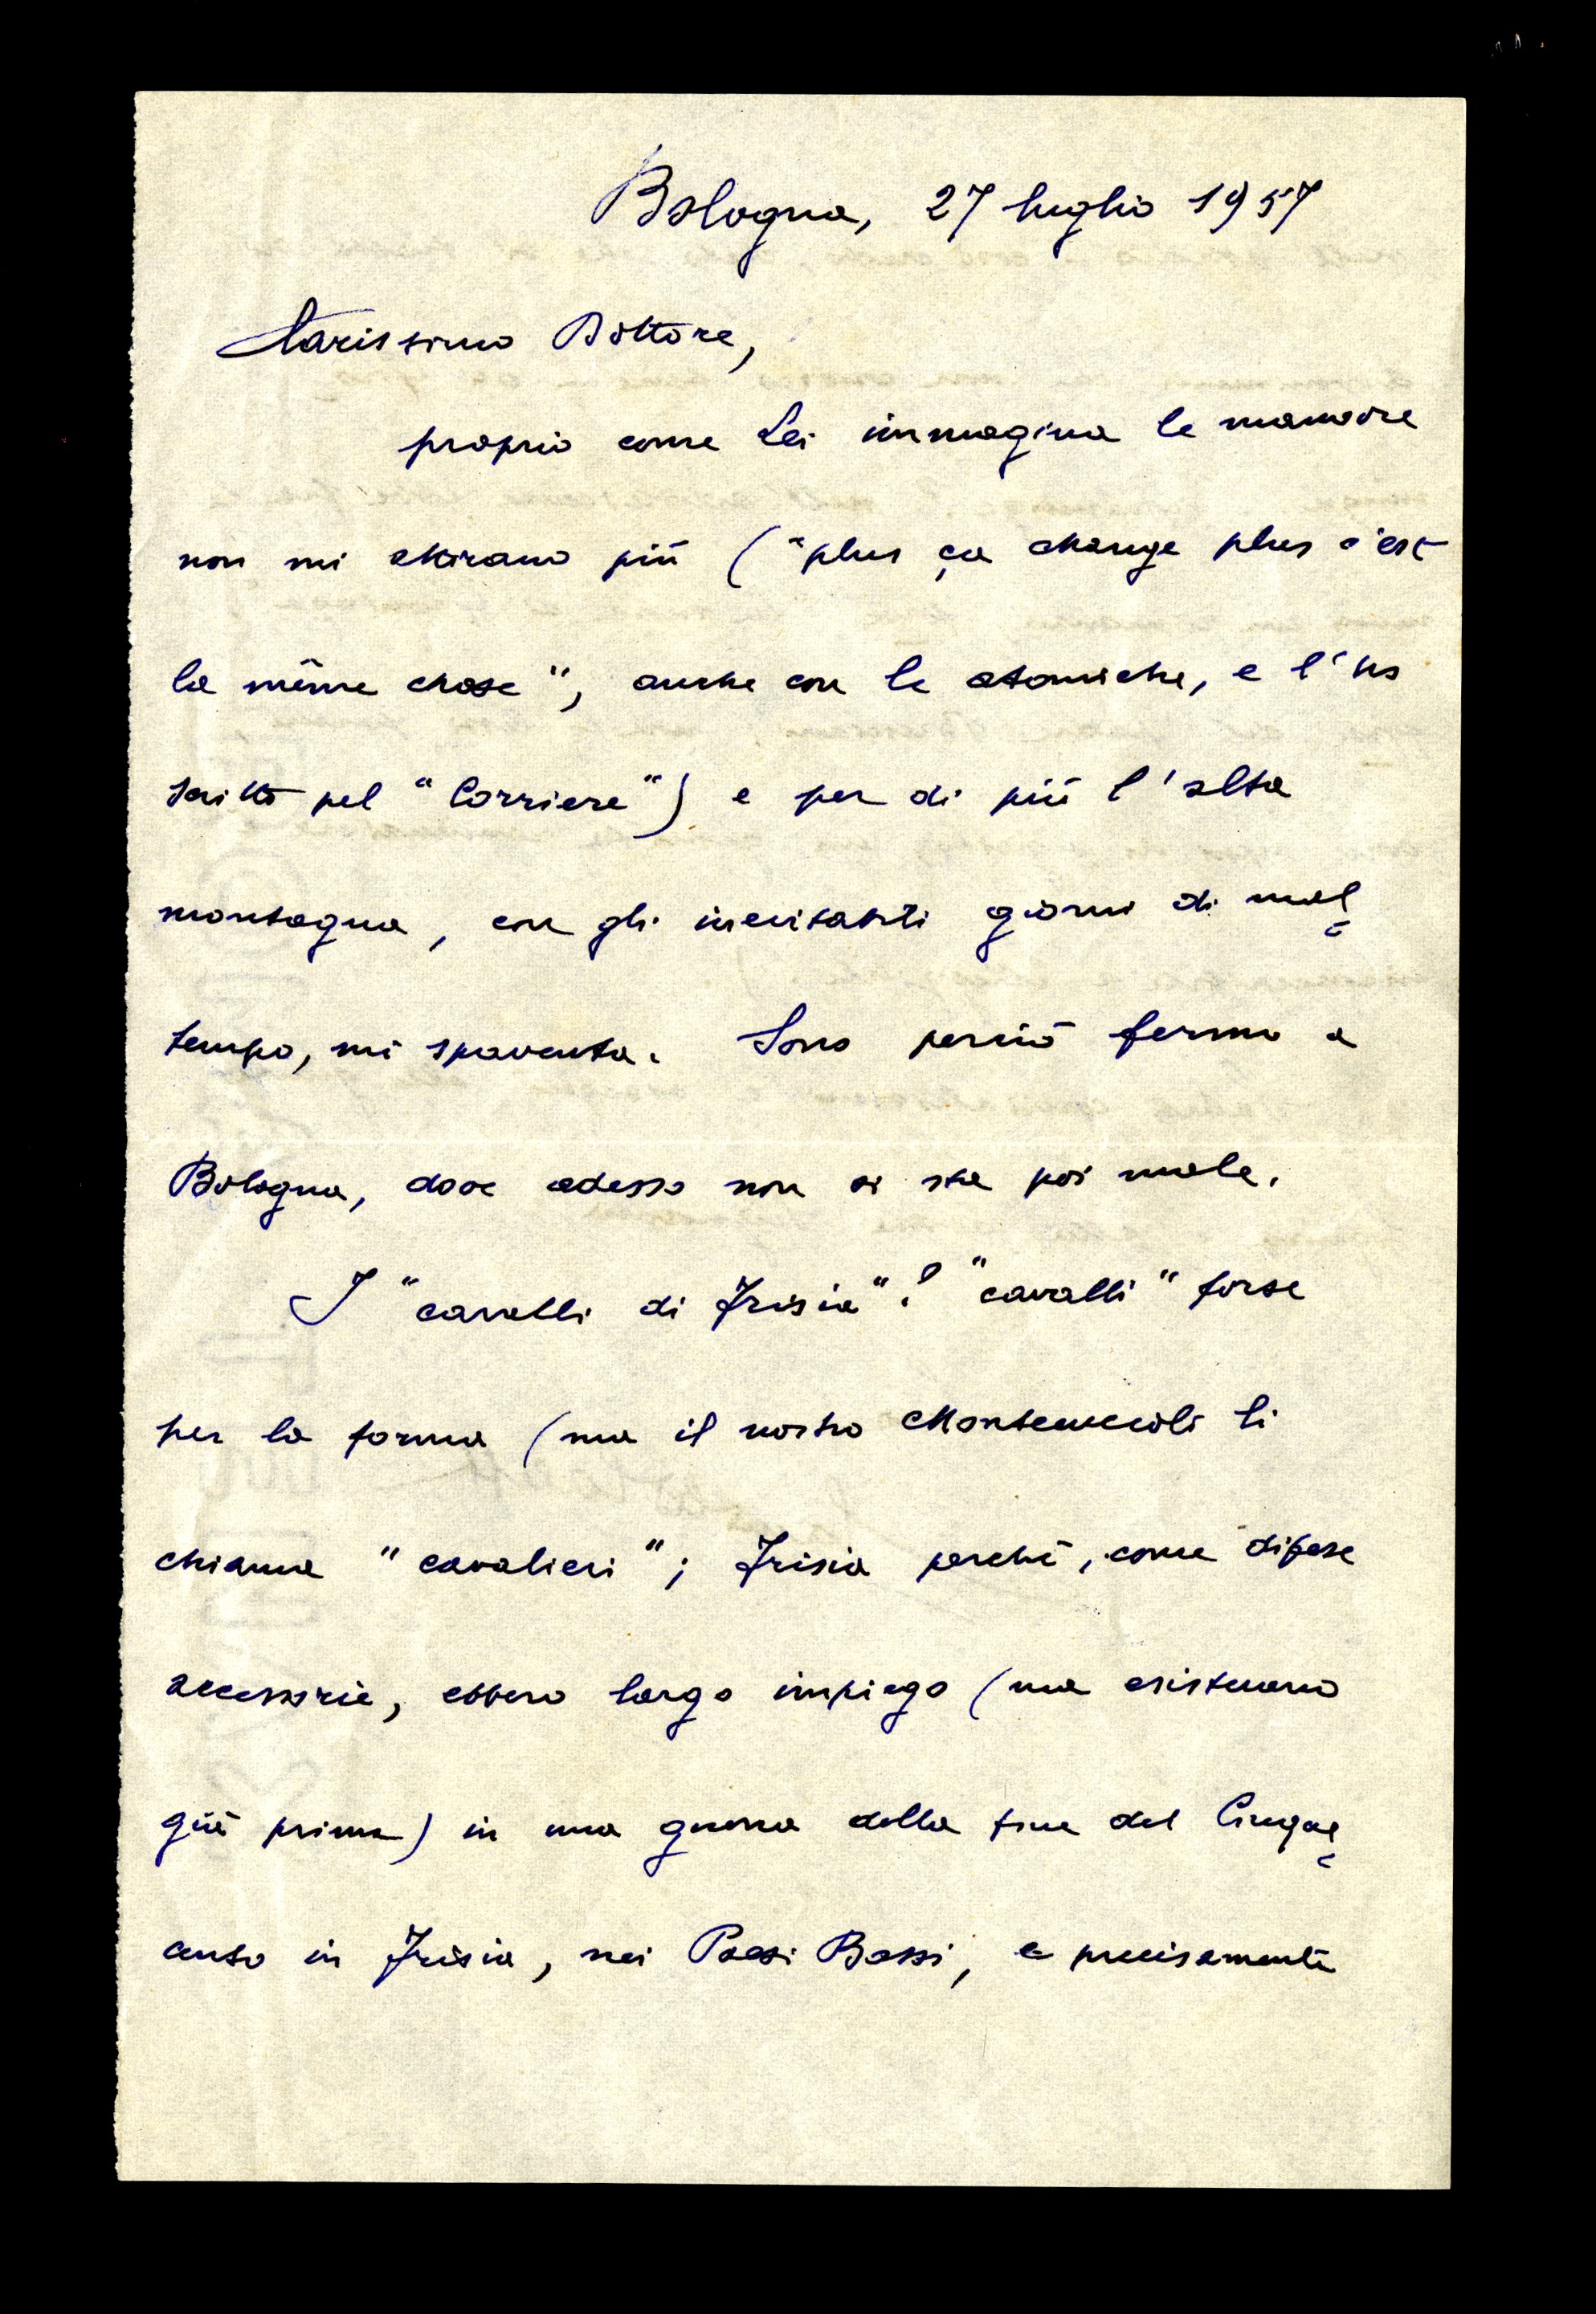 Bologna, 27 luglio 1957
Carissimo Dottore,
proprio come Lei immagina le manovre
non mi attirano più ("plus ça change plus c'est
la même chose", anche con le atomiche, e l'ho
scritto pel "Corriere") e per di più l'alta
montagna, con gli inevitabili giorni di mal=
tempo, mi spaventa. Sono perciò fermo a
Bologna, dove adesso non si sta poi male.
I "cavalli di Frisia"? "cavalli" forse
per la forma (ma il nostro Montecuccoli li
chiama "cavalieri"; Frisia perché, come difese
accessorie, ebbero largo impiego (ma esistevano
già prima) in una guerra della fine del Cinque=
cento in Frisia, nei Paesi Bassi, e precisamente